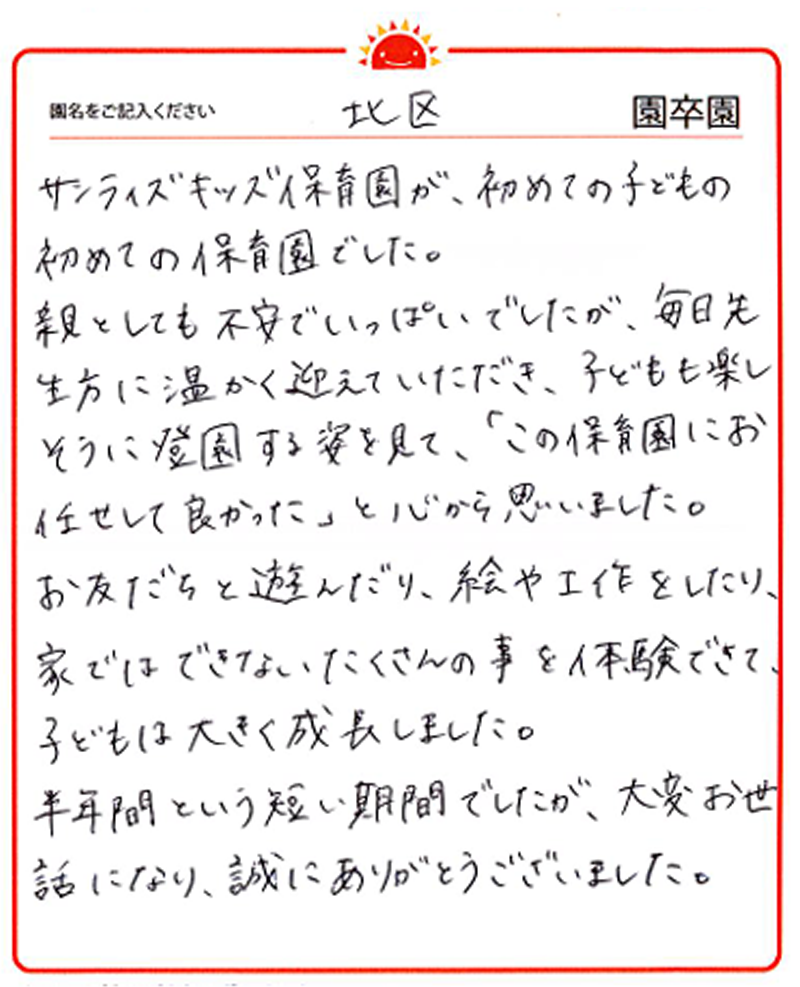 園名をご記入ください 北区 園卒園
サンライズキッズ保育園が、初めての子どもの
初めての保育園でした。
親としても不安でいっぱいでしたが、毎日先
生方に温かく迎えていただき、子どもも楽し
そうに登園する姿を見て、「この保育園にお
任せして良かった」と心から思いました。
お友だちと遊んだり、絵や工作をしたり、
家ではできないたくさんの事を体験できて、
子どもは大きく成長しました。
半年間という短い期間でしたが、大変お世
話になり、誠にありがとうございました。